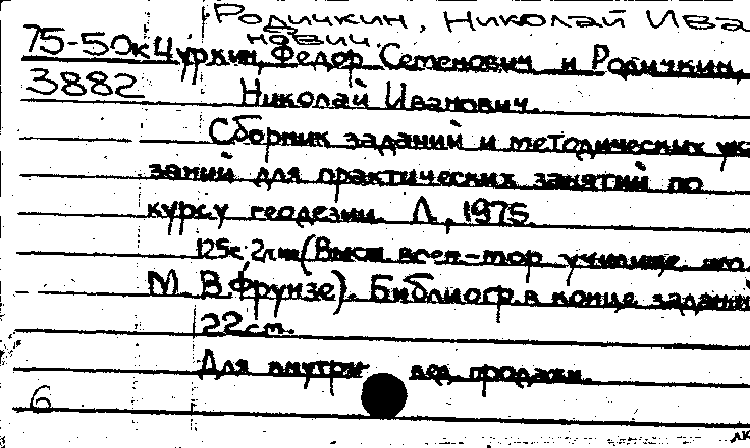 Родичкин, Николай Ива
нович.
75-50к Чуркин, Федор Семенович и Родичкин,
3882 Николай Иванович.
Сборник заданий и методических ука
заний для практических занятий по
курсу геодезии. Л., 1975.
125с; 2л. (Высш. воен-мор училище им.
М. В. Фрунзе). Библиогр. в конце заданий
22 см.
Для внутри вед. продажи.
6